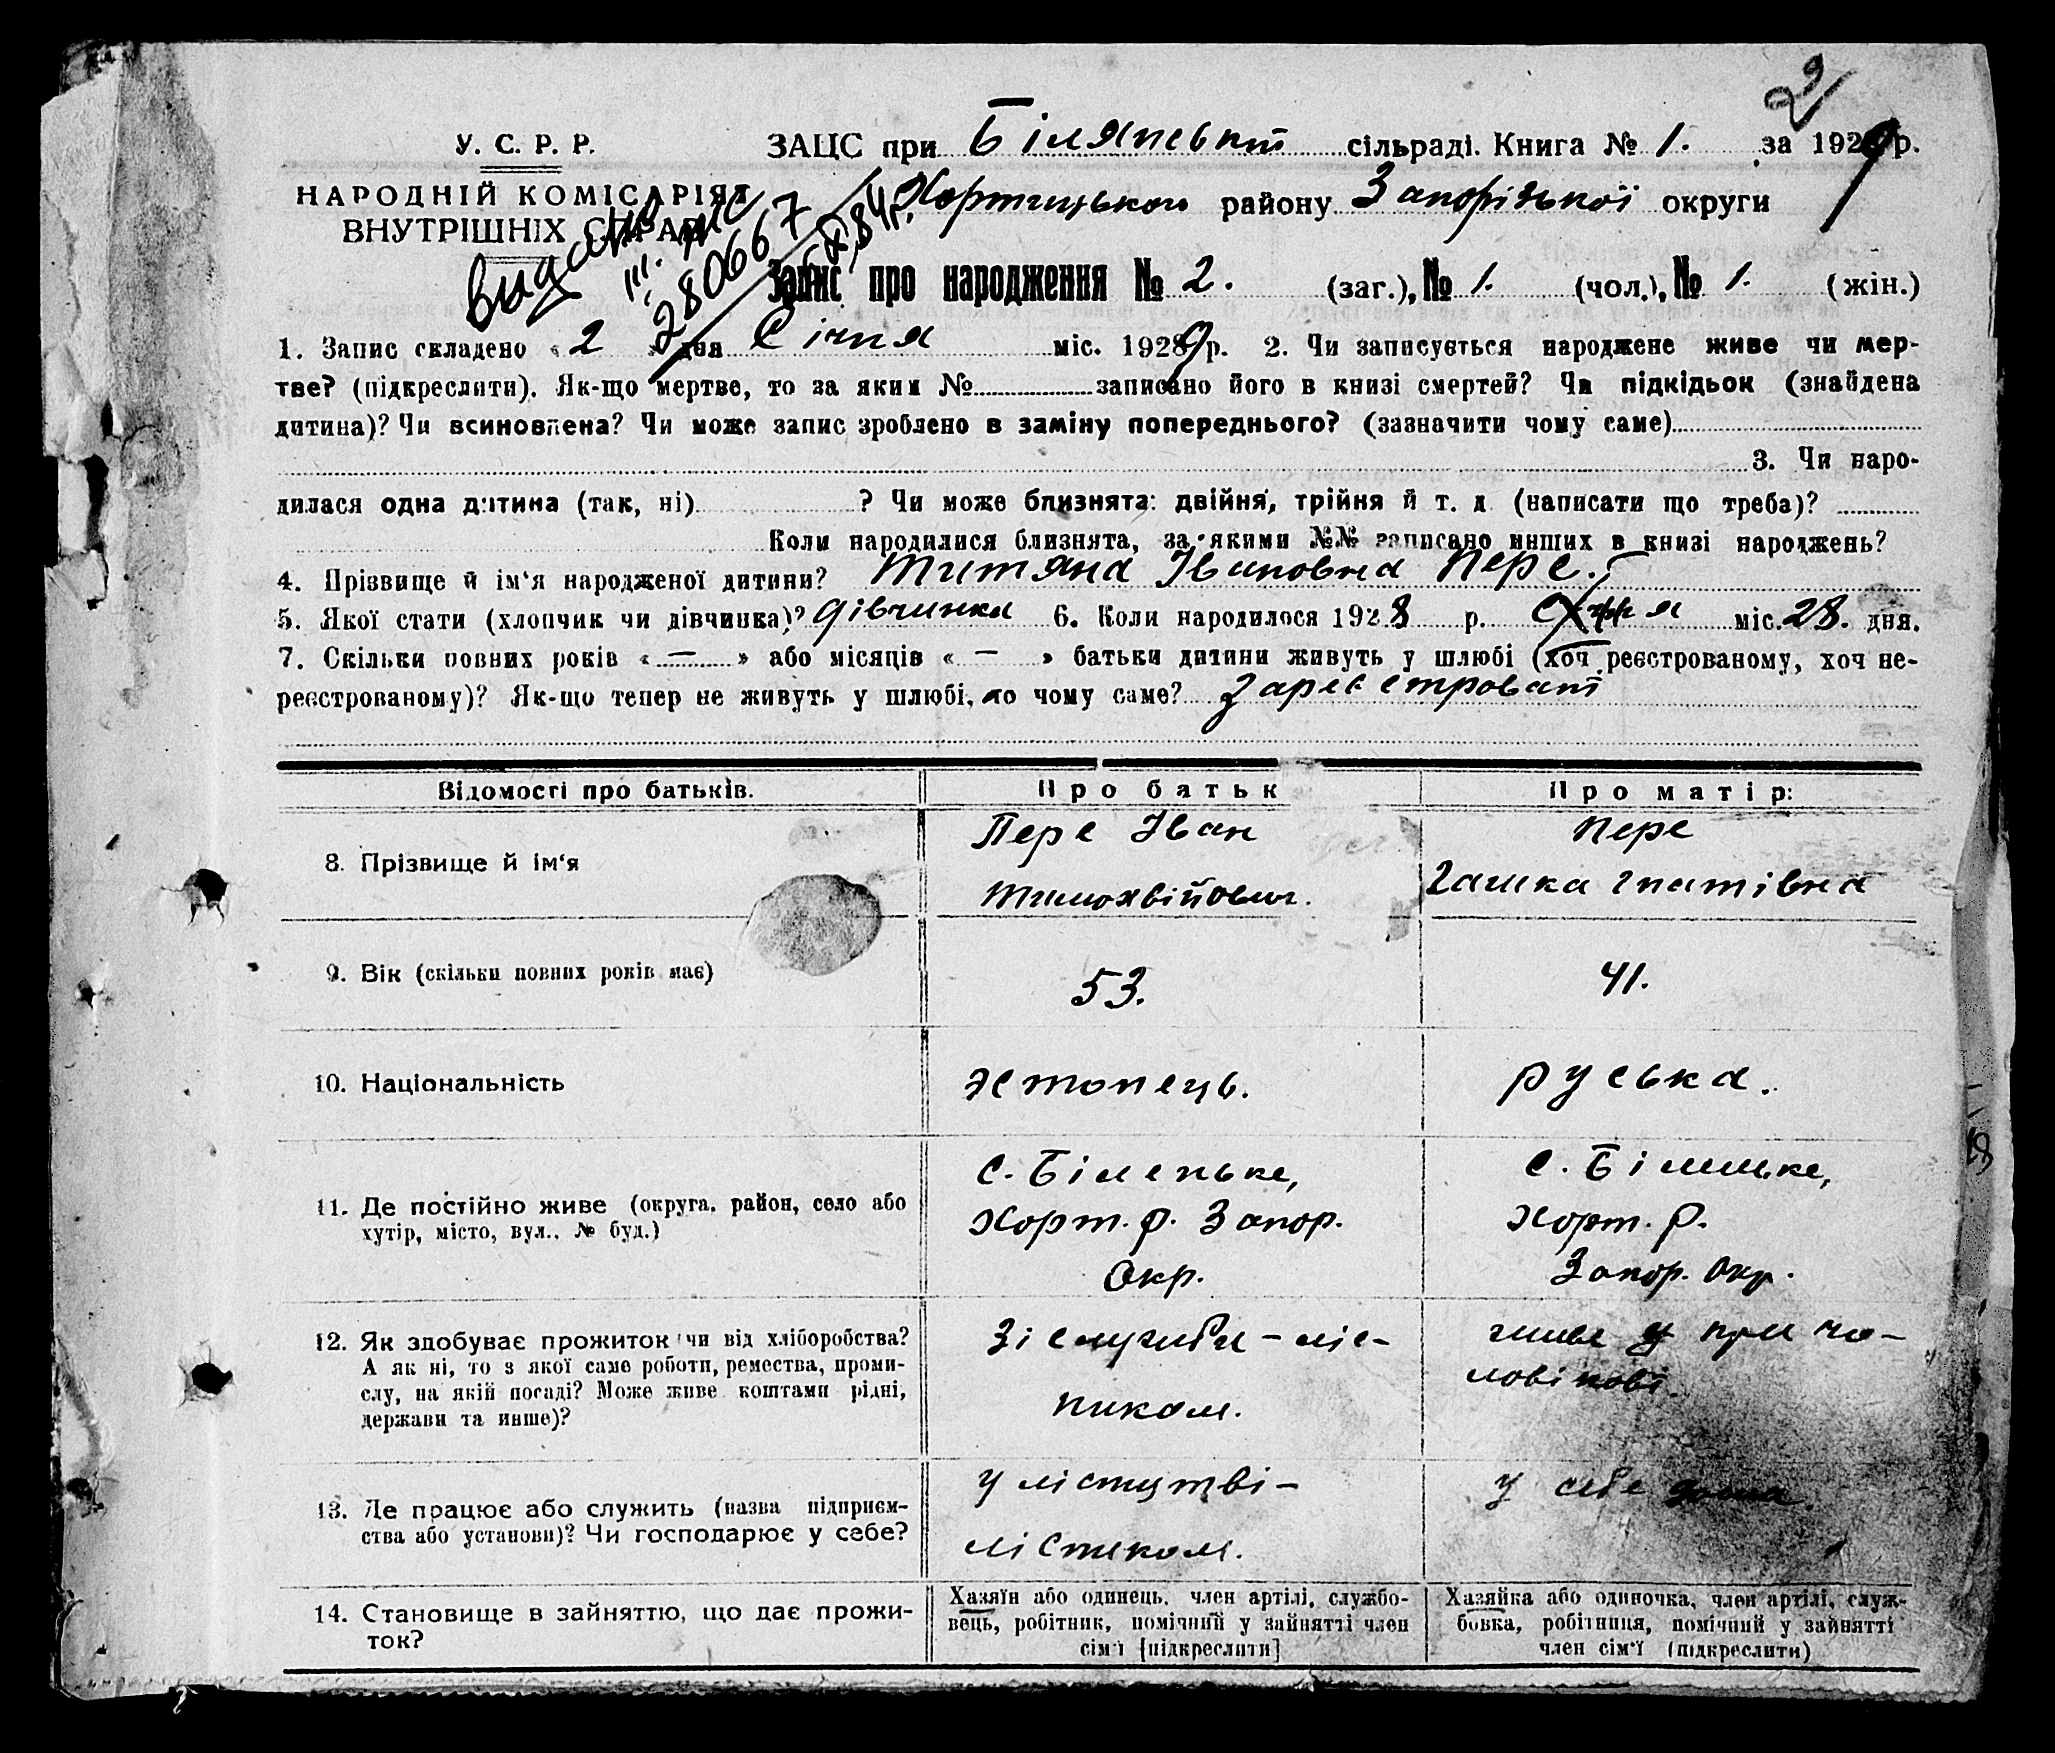 2
У. С. Р. Р.
ЗАЦС при Білянські сільраді. Книга № 1. за 1929 р.
НАРОДНІЙ КОМІСАРІЯТ
ВНУТРІШНІХ СПРАВ
Хортицького району Запорізької округи
видано
2806667
Запис про народження № 2. (заг.), № 1. (чол.), № 1. (жін.)
1. Запис складено «2» дня Січня міс. 1929 р. 2. Чи записується народжене живе чи мер-
тве? (підкреслити). Як-що мертве, то за яким № записано його в книзі смертей? Чи підкідьок (знайдена
дитина)? Чи всиновлена? Чи може запис зроблено в заміну попереднього? (зазначити чому саме)
3. Чи наро-
дилася одна дитина (так, ні) ? Чи може близнята: двійня, трійня й т. д. (написати що треба)?
Коли народилися близнята, за якими №№ записано инших в книзі народжень?
4. Прізвище й ім‘я народженої дитини? Титяна Івановна Пере.
5. Якої стати (хлопчик чи дівчинка)? дівчинка 6. Коли народилося 1928 р. міс. 28. дня.
7. Скільки повних років « — » або місяців « — » батьки дитини живуть у шлюбі (хоч реєстрованому, хоч не-
реєстрованому)? Як-що тепер не живуть у шлюбі, то чому саме? Зареєстровані
Відомості про батьків. Про батьк Про матір:
8. Прізвище й ім‘я
Пере Іван
Тимохвійович.
Пере
Гашка Гнатівна
9. Вік (скільки повних років має) 53. 41.
10. Національність естонець. руська.
11. Де постійно живе (округа, район, село або
хутір, місто, вул., № буд.)
с. Біленьке,
Хорт. р. Запор.
Окр.
с. Біленьке,
Хорт. р.
Запор. Окр.
12. Як здобуває прожиток чи від хліборобства?
А як ні, то з якої саме роботи, ремества, проми-
слу, на якій посаді? Може живе коштами рідні,
держави та инше)?
Зі служби – ліс-
ником.
живе у при чо-
ловікові.
13. Де працює або служить (назва підприєм-
ства або установи)? Чи господарює у себе?
у ліснцтві –
лісником.
у себе дома.
14. Становище в зайняттю, що дає прожи-
ток?
Хазяїн або одинець, член артілі, службо-
вець, робітник, помічний у зайнятті член
сім‘ї [підкреслити]
Хазяйка або одиночка, член артілі, служ-
бовка, робітниця, помічний у зайнятті
член сім‘ї (підкреслити)